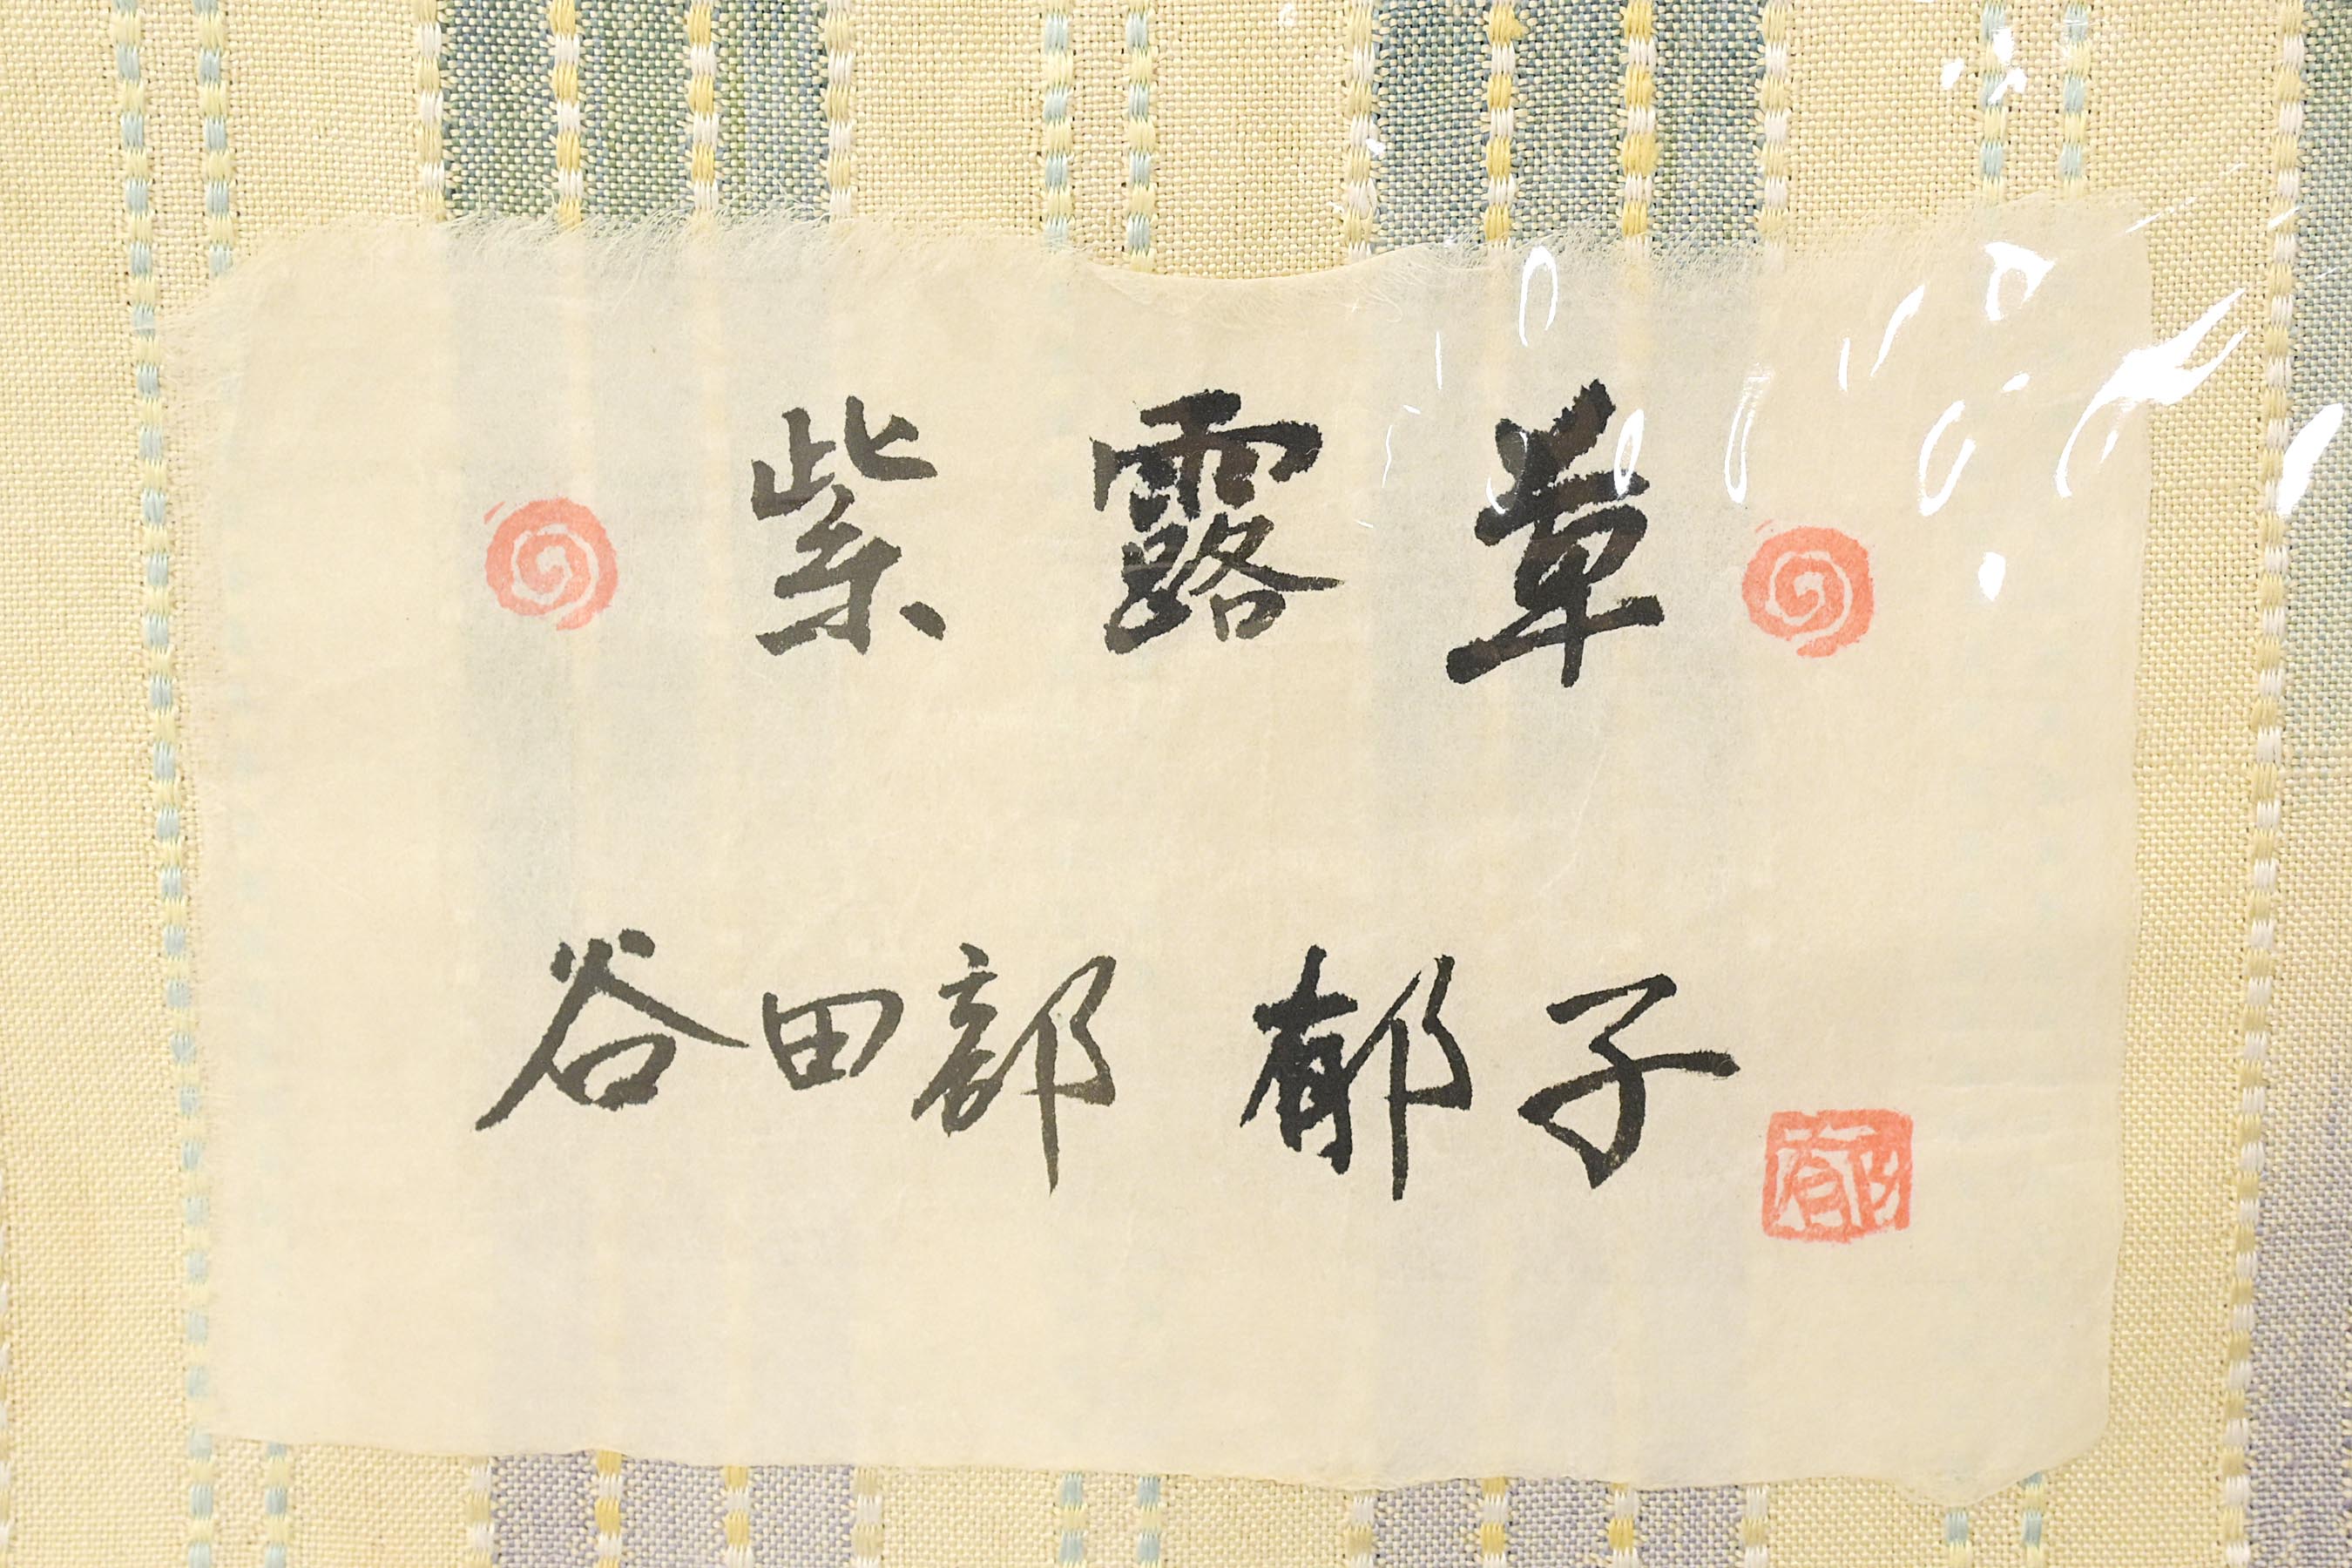 紫露草
谷田部 郁子